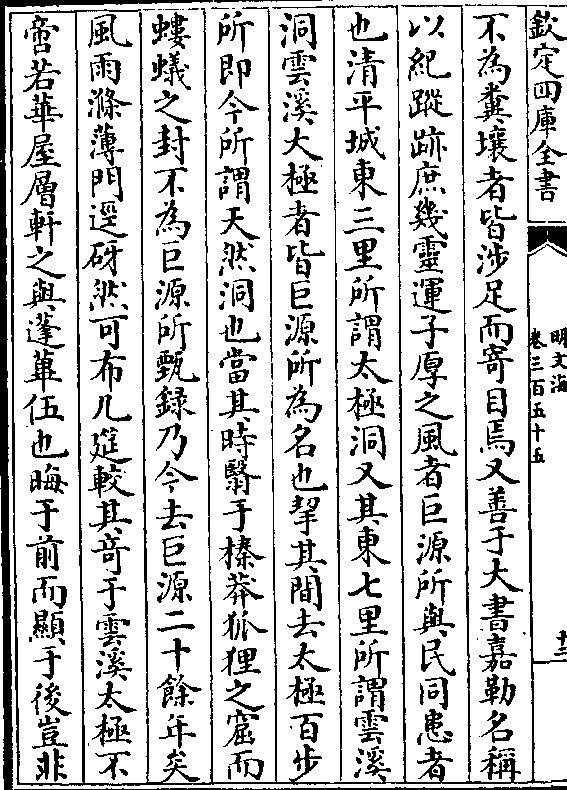 欽定四庫全書
明文海
卷三百五十五
十二
不為糞壤者皆涉足而寄目焉又善于大書嘉勒名稱
以紀蹤跡庶幾靈運子厚之風者巨源所與民同患者
也清平城東三里所謂太極洞又其東七里所謂雲溪
洞雲溪大極者皆巨源所為名也挈其間去太極百步
所即今所謂天然洞也當其時翳于榛莽狐狸之窟而
螻蟻之封不為巨源所甄錄乃今去巨源二十餘年矣
風雨滌薄門逕砑然可布几筵較其奇于雲溪太極不
啻若華屋層軒之與蓬蓽伍也晦于前而顯于後豈非